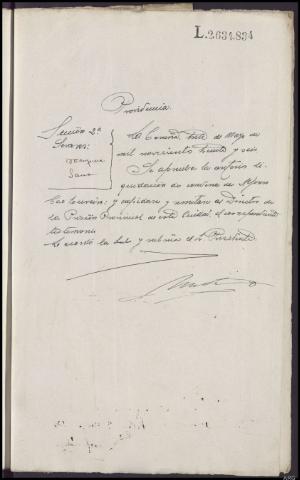 L.2634.834
Providencia
Sección 2ª
Señores:
La Coruña, trece de Mayo de
mil novecientos treinta y seis
Se aprueba la anterior li-
quidación de condena de
y expídase y remítase al Director de
la Prisión Provincial de esta Ciudad el correspondiente
testimonio
Lo acordó la Sala y rubrica el Sr. Presidente